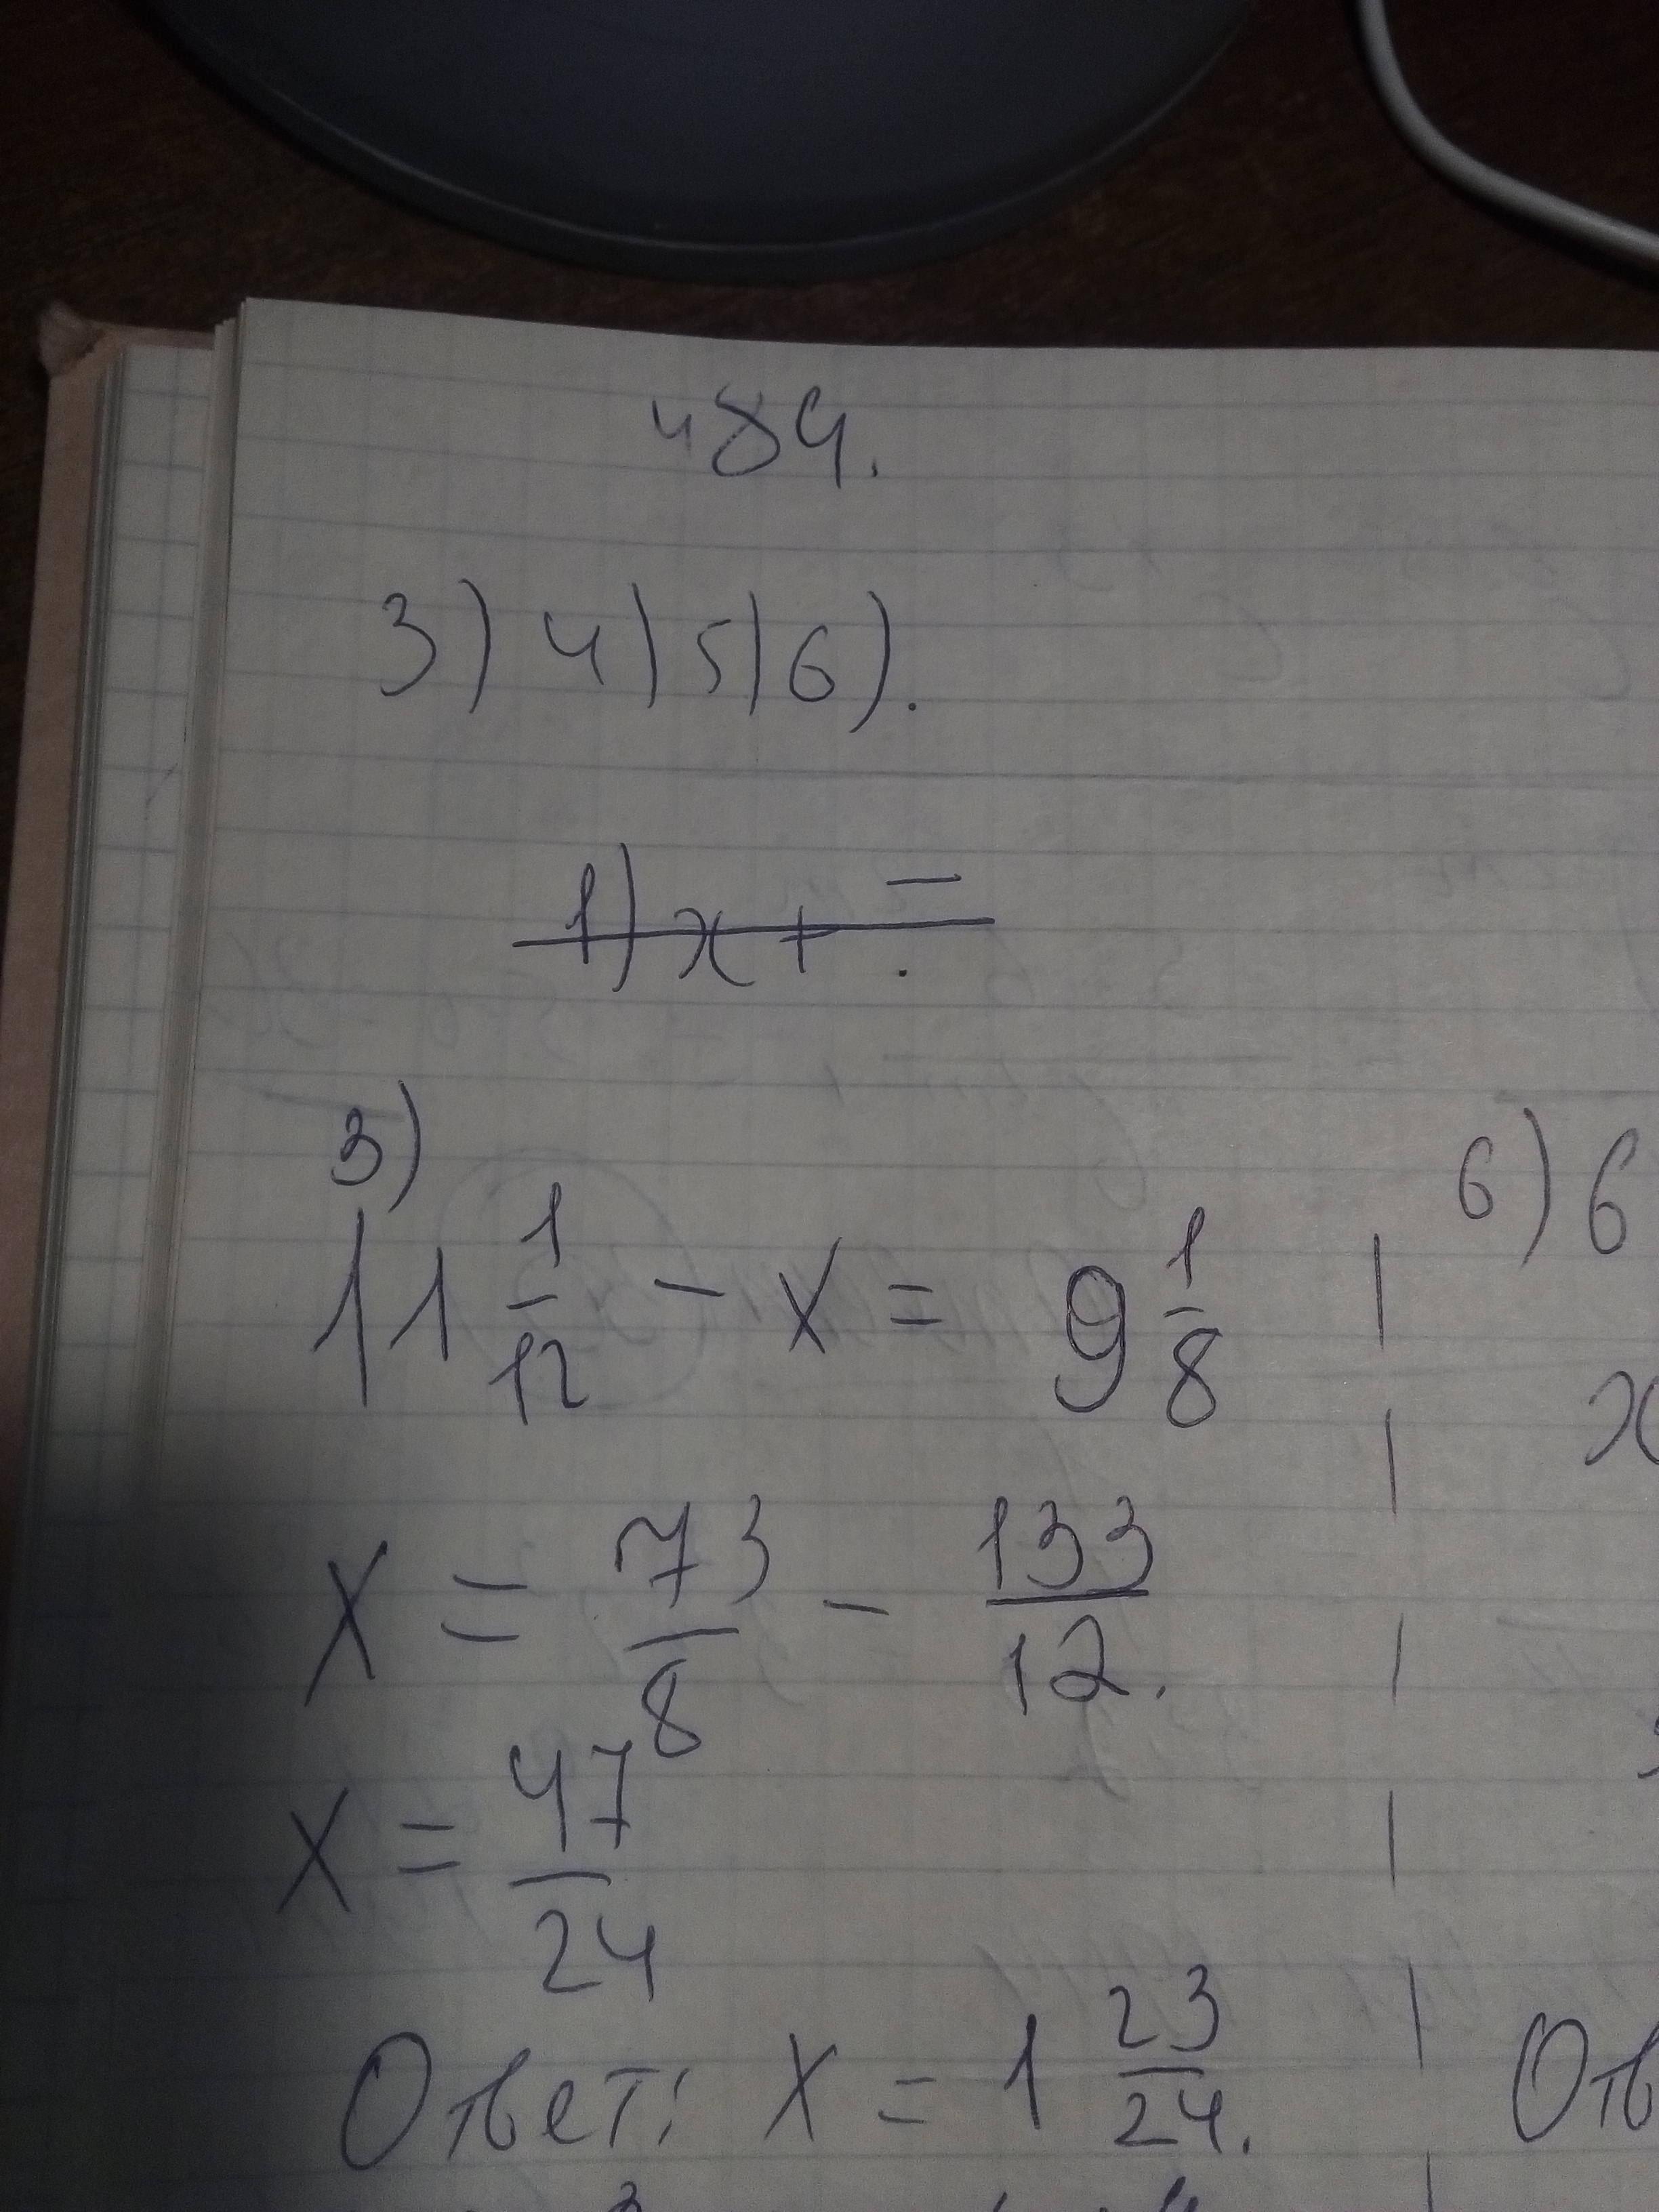 484.
3) 4) 5) 6).
1) x + —
3)
11 1/12 - x = 9 1/8
6) 6
x
x = 73/8 - 133/12.
x = 47/24
Ответ: x = 1 23/24.
Отв